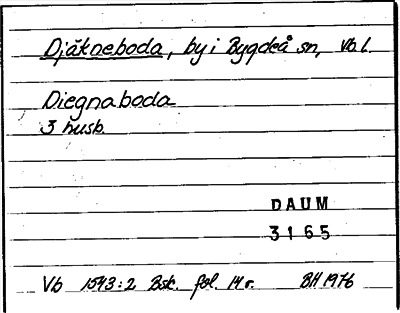 Djäkneboda, by i Bygdeå sn, Vb l.
Diegnaboda
3 husb.
DAUM
3165
Vb 1543:2 Bsk. fol. 14 r. BH 1976